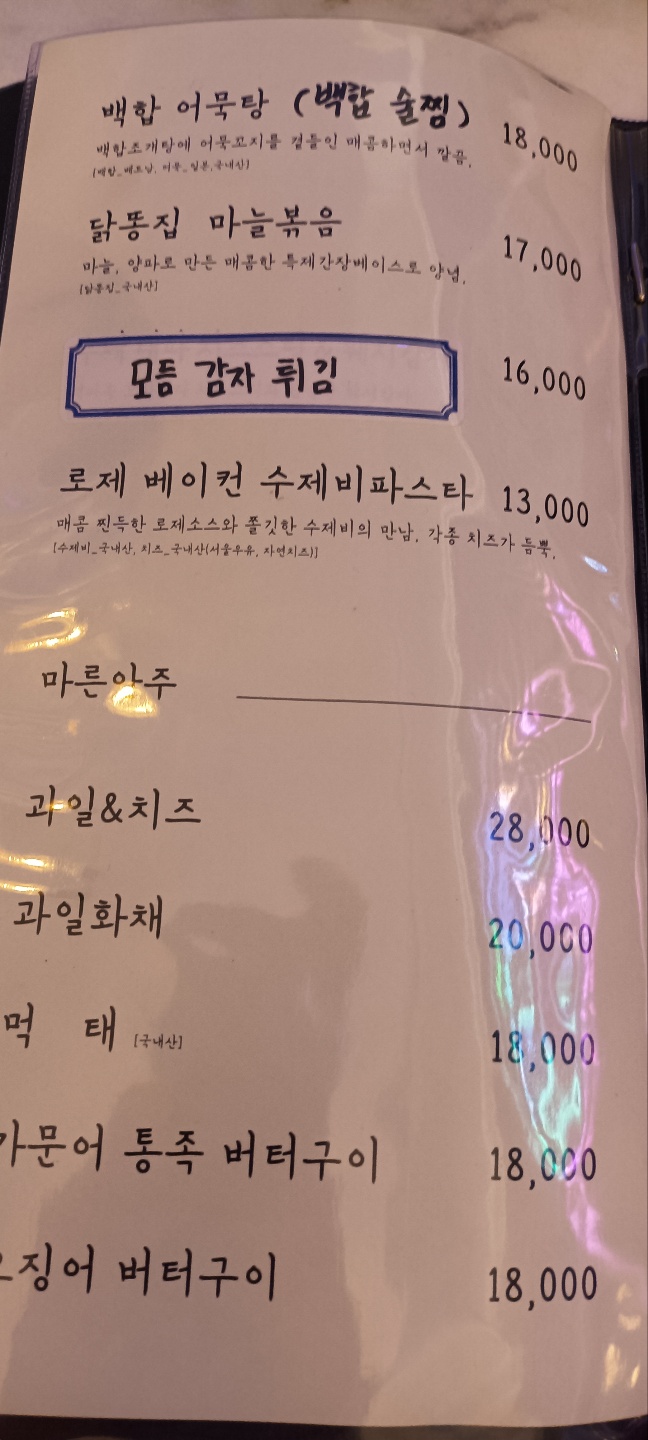 백합 어묵탕 (백합 술찜) 18,000
백합조개탕에 어묵꼬지를 곁들인 매콤하면서 깔끔.
[백합_베트남, 어묵_일본,국내산]
닭똥집 마늘볶음 17,000
마늘, 양파로 만든 매콤한 특제간장베이스로 양념.
[닭똥집_국내산]
모듬 감자 튀김 16,000
로제 베이컨 수제비파스타 13,000
매콤 찐득한 로제소스와 쫄깃한 수제비의 만남. 각종 치즈가 듬뿍.
[수제비_국내산, 치즈_국내산(서울우유, 자연치즈)]
마른안주
과일&치즈 28,000
과일화채 20,000
먹 태 [국내산] 18,000
가문어 통족 버터구이 18,000
징어 버터구이 18,000